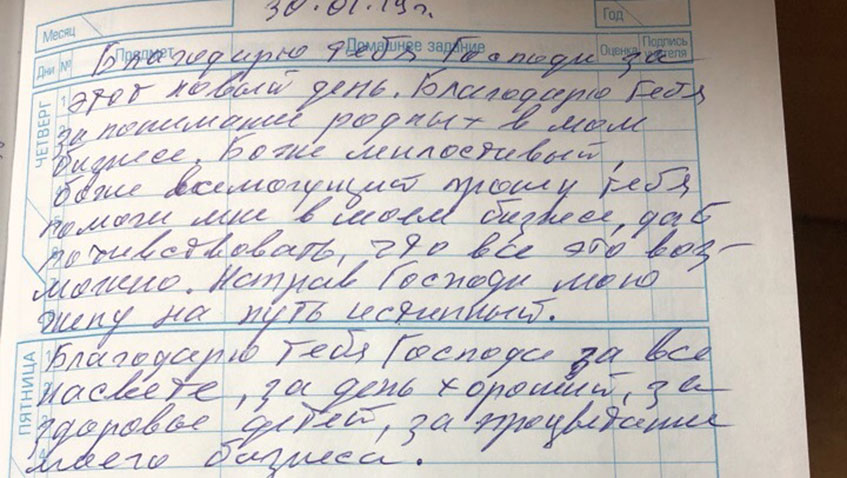 30.01.19г.
Месяц
Год
Дни
№
Предмет
Домашнее задание
Оценка
Подпись учителя
Благодарю тебя Господи за
ЧЕТВЕРГ
1
этот новый день. Благодарю Тебя
за понимание родных в мом
бизнесе. Боже милостивый,
боже всемогущий прошу тебя
помоги мне в моем бизнесе, дай
почувствовать, что все это воз-
можно. Настрав Господи мою
жену на путь истинный.
ПЯТНИЦА
1
Благодарю Тебя Господи за все
на свете, за день хороший, за
здоровье детей, за процветание
моего бизнеса.